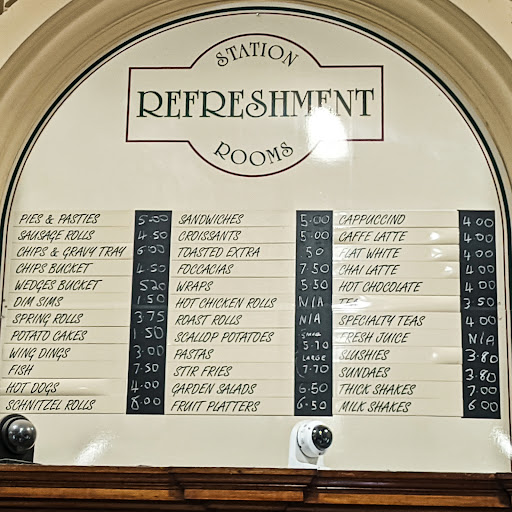 STATION
REFRESHMENT
ROOMS
PIES & PASTIES 5.00
SAUSAGE ROLLS 4 50
CHIPS & GRAVY TRAY 6.00
CHIPS BUCKET 4.50
WEDGES BUCKET 5.20
DIM SIMS 1.50
SPRING ROLLS 3.75
POTATO CAKES 1.50
WING DINGS 3.00
FISH 7.50
HOT DOGS 4.00
SCHNITZEL ROLLS 8.00
SANDWICHES 5.00
CROISSANTS 5.00
TOASTED EXTRA 50
FOCCACIAS 7.50
WRAPS 5.50
HOT CHICKEN ROLLS N/A
ROAST ROLLS N/A
SCALLOP POTATOES
PASTAS 5.70
LARGE
STIR FRIES 7.70
GARDEN SALADS 6.50
FRUIT PLATTERS 6.50
CAPPUCCINO 4.00
CAFFE LATTE 4.00
FLAT WHITE 4.00
CHAI LATTE 4.00
HOT CHOCOLATE 4.00
TEA 3.50
SPECIALTY TEAS 4.00
FRESH JUICE N/A
SLUSHIES 3.80
SUNDAES 3.80
THICK SHAKES 7.00
MILK SHAKES 6.00